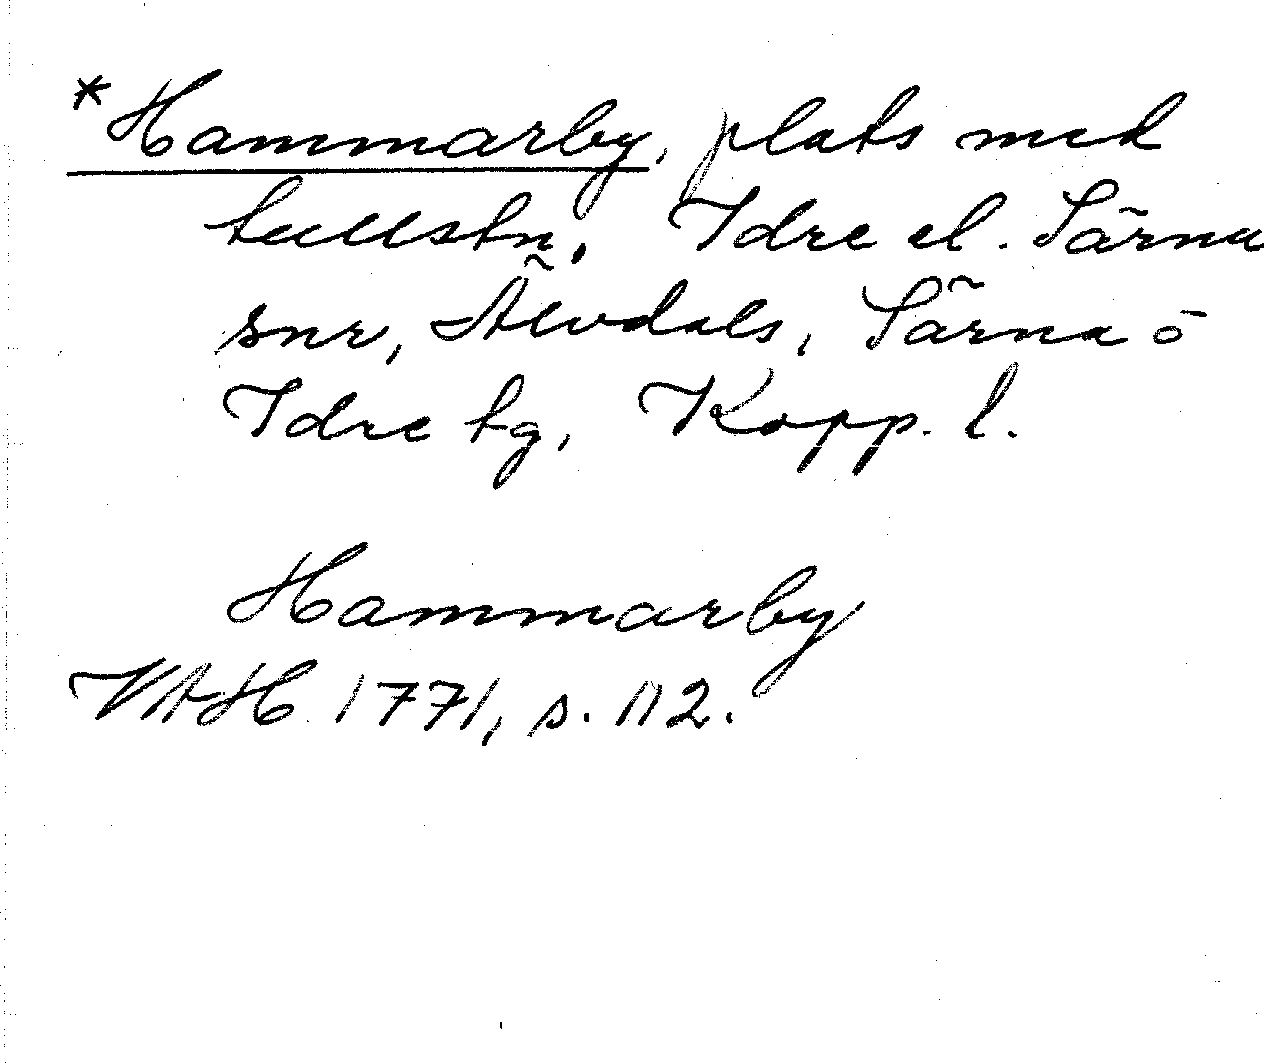 *Hammarby, plats med
tullstn. Idre el. Särna
snr, Älvdals, Särna ö
Idre tg, Kopp. l.
Hammarby
VAH 1771, s. 112.